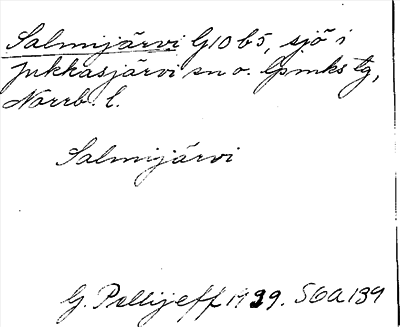 Salmijärvi G10b5, sjö i
Jukkasjärvi sn o. lpmks tg,
Norrb. l.
Salmijärvi
G. Pellijeff 1939. 56a139